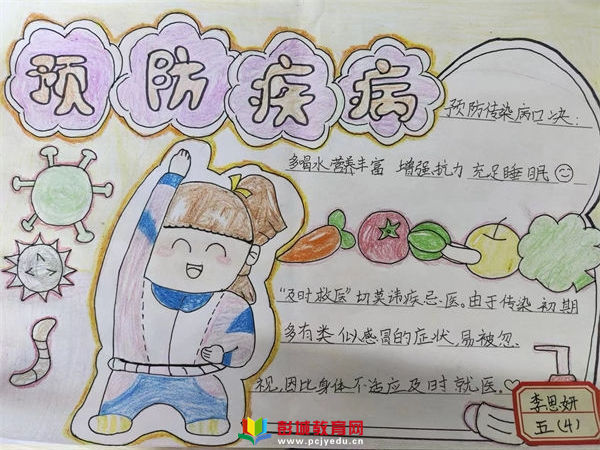 预防疾病
预防传染病口决：
多喝水 营养丰富 增强抗力 充足睡眠
“及时救医”切莫讳疾忌医。由于传染初期
多有类似感冒的症状，易被忽、
视，因比身体不适应及时就医。
李思妍
五（4）
彭城教育网
www.pcjyedu.cn